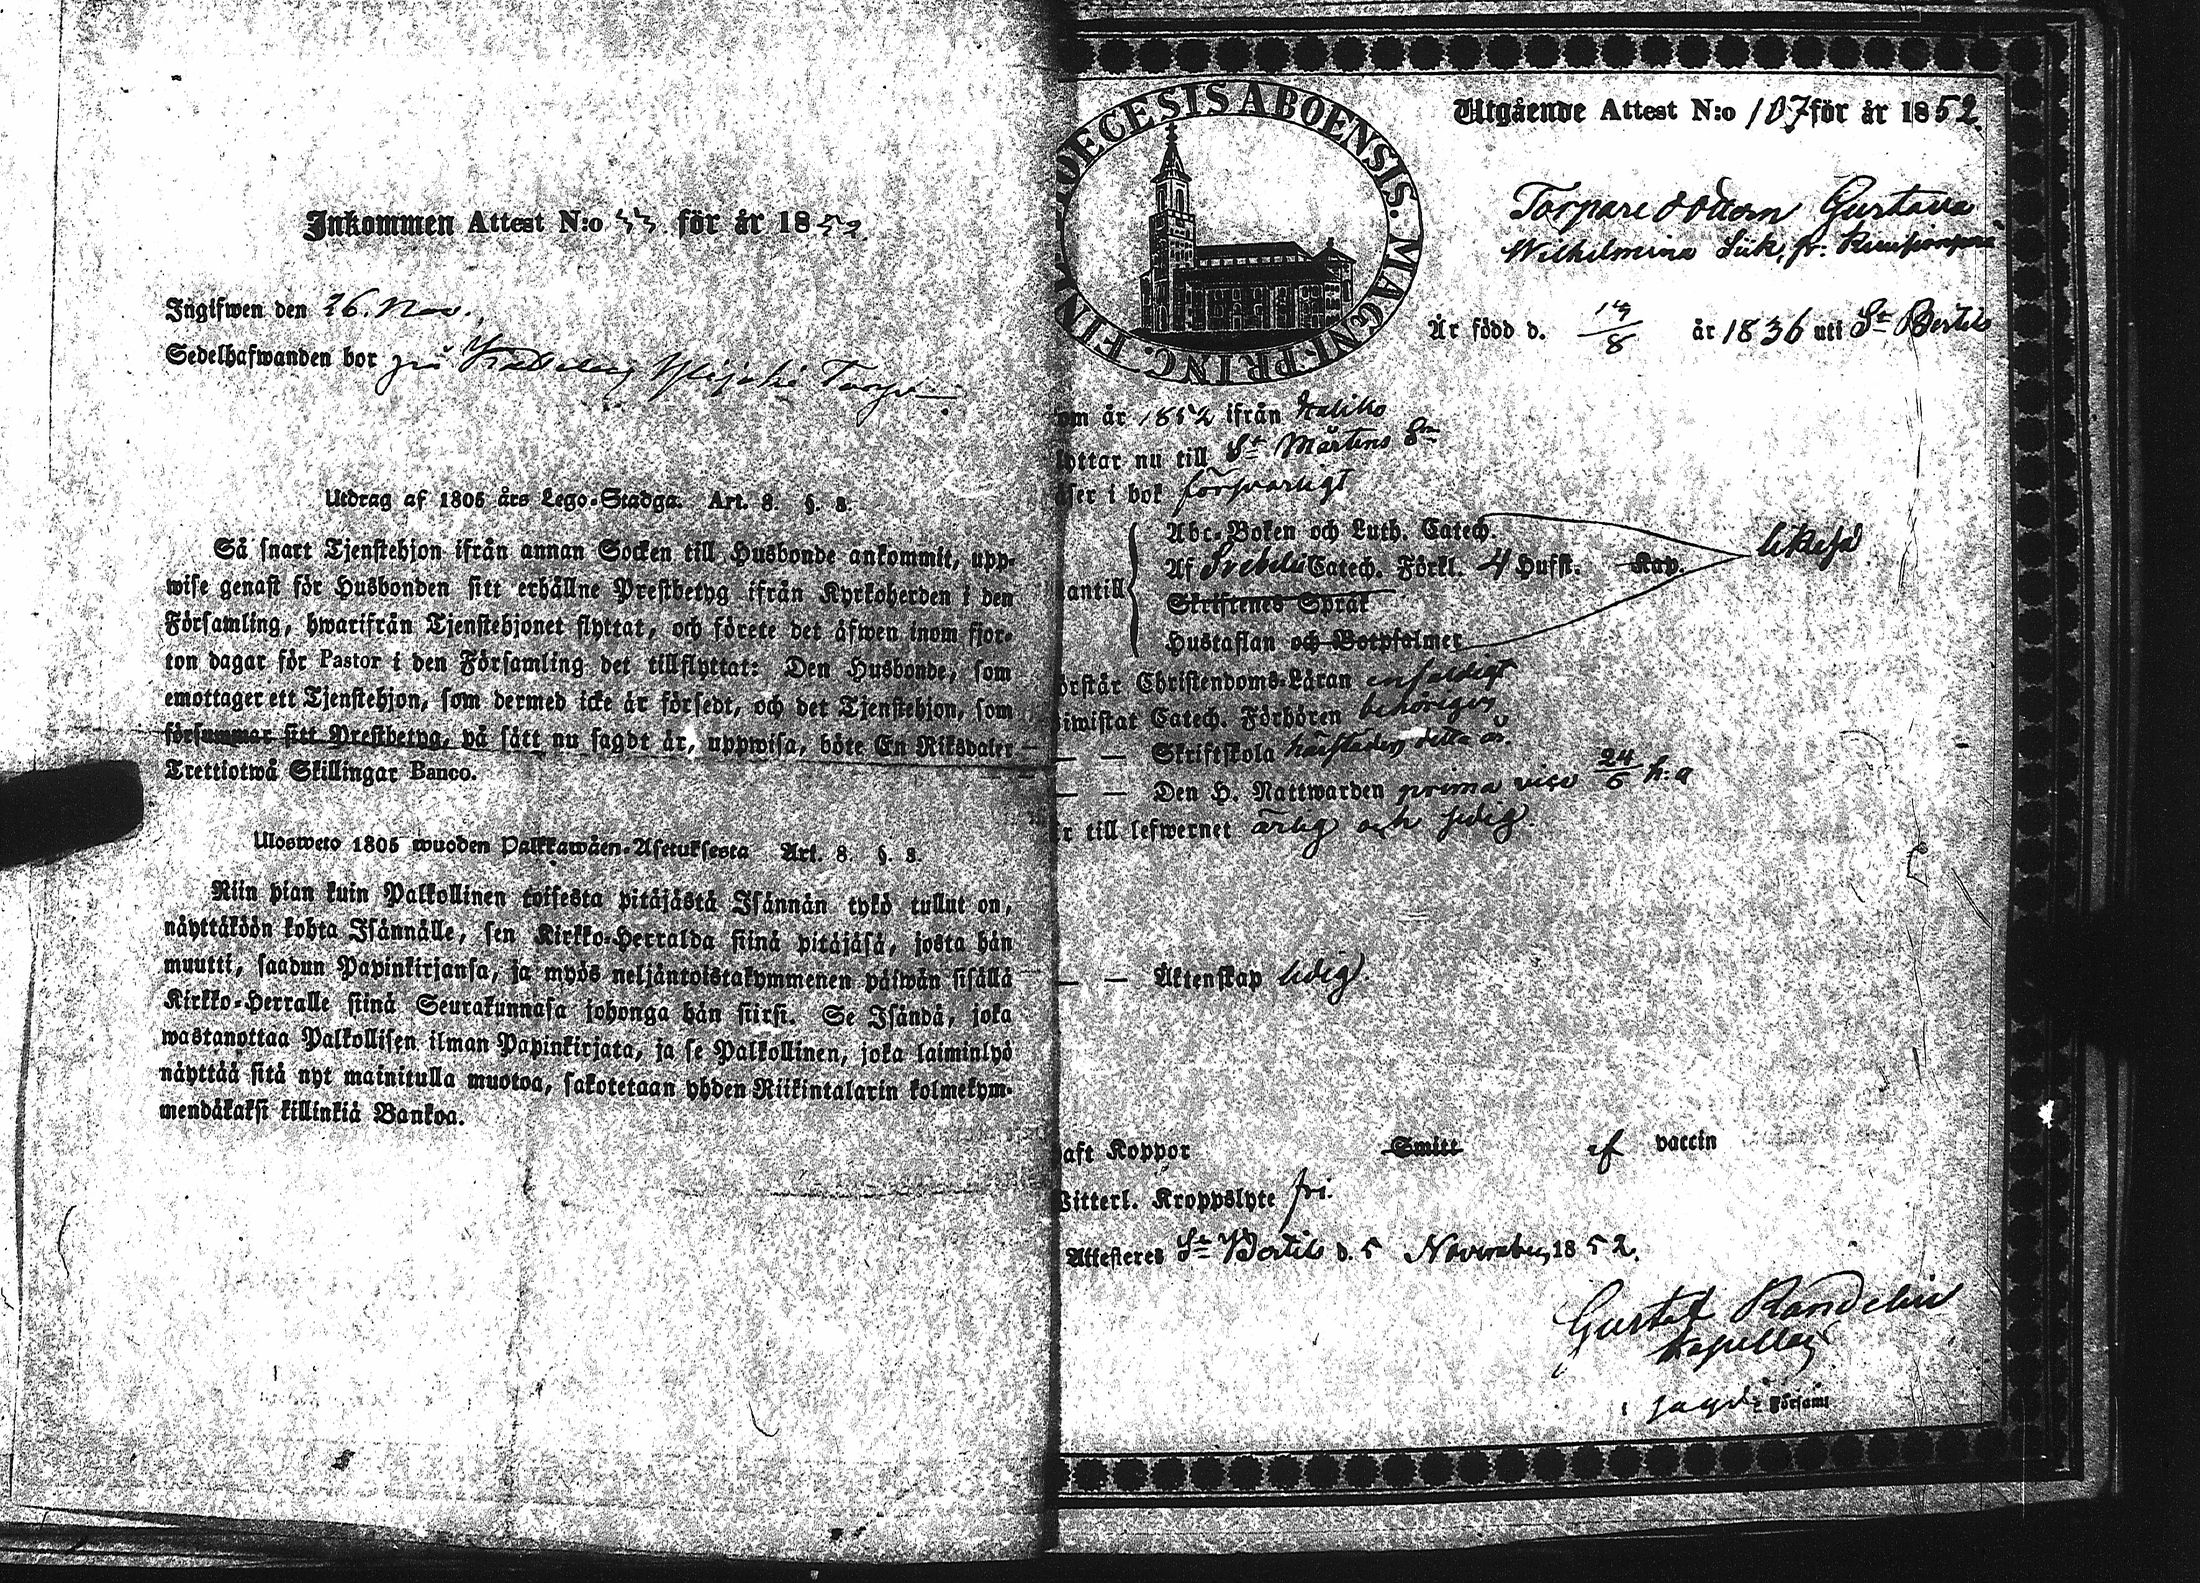 Inkommen Attest N:o 33 för år 1852.
Ingifwen den 26. Nov.
Sedelhafwanden bor på Torp
Utdrag af 1805 års Lego-Stadga. Art. 8. §. 8.
Så snart Tjenstehjon ifrån annan Socken till Husbonde ankommit, upp-
wise genast för Husbonden sitt erhållne Prestbetyg ifrån Kyrkoherden i den
Församling, hwarifrån Tjenstehjonet flyttat, och förete det äfwen inom fjor-
ton dagar för Pastor i den Församling det tillflyttat: Den Husbonde, som
emottager ett Tjenstehjon, som dermed icke är försedt, och det Tjenstehjon, som
försummar sitt Prestbetyg, på sätt nu sagdt är, uppwisa, böte En Riksdaler
Trettiotwå Skillingar Banco.
Ulosweto 1805 wuoden Palkkawäen-Asetuksesta Art. 8. §. 8.
Niin pian kuin Palkollinen toisesta pitäjästä Isännän tykö tullut on,
näyttäköön kohta Isännälle, sen Kirkko-Herralda siinä pitäjäsä, josta hän
muutti, saadun Papinkirjansa, ja myös neljäntoistakymmenen päiwän sisällä
Kirkko-Herralle siinä Seurakunnasa johonga hän siirsi. Se Isändä, joka
wastanottaa Palkollisen ilman Papinkirjata, ja se Palkollinen, joka laiminlyö
näyttää sitä nyt mainitulla muotoa, sakotetaan yhden Riikintalarin kolmekym-
mendäkaksi killinkiä Bankoa.
DIOECESIS ABOENSIS. MAGNI PRINC. FINL
Utgående Attest N:o 107 för år 1852.
Torpare dottern Gustava
Wilhelmina fr.
Är född d. 14/8 år 1836 uti St Bertils
om år 1852 ifrån Haliko
yttar nu till St Mårtens Sn
äser i bok försvarligt
Abc-Boken och Luth. Catech.
Af Svebelii Catech. Förkl. 4 Hufst. Kap. likaså
antill Skriftenes Språk
Hustaflan och Botpsalmer
örstår Christendoms-Läran enfaldigt
iwistat Catech. Förhören behörigen
— — Skriftskola härstädes detta år.
— — Den H. Nattwarden prima vice 24/6 h. a
r till lefwernet ärlig och sedig.
— — Äktenskap ledig
aft Koppor Smitt af vaccin
itterl. Kroppslyte fri.
Attesteres St Bertils d. 5 November 1852.
Gustaf Randelin
Kapellan
i sagde Församl